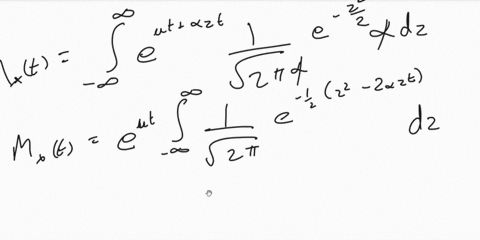 Mₓ(t) = ∫_{-∞}^{∞} e^{μt+αzt} 1/√2πα̸ e^{-z²/2} α̸ dz
Mₓ(t) = e^{μt} ∫_{-∞}^{∞} 1/√2π e^{-1/2 (z² - 2αzt)} dz